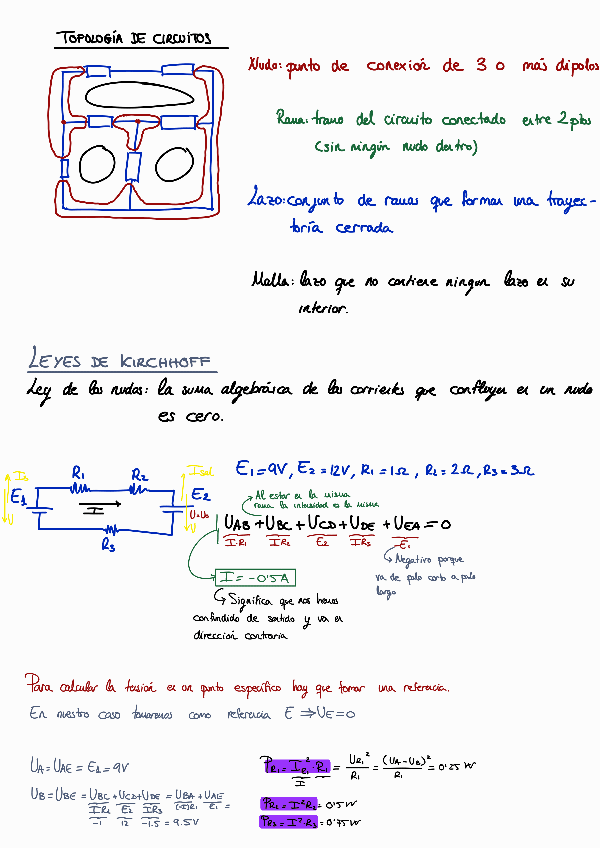 TOPOLOGÍA DE CIRCUITOS
Nudo: punto de conexión de 3 o más dipolos
Rama: tramo del circuito conectado entre 2 ptos
(sin ningún nudo dentro)
Lazo: conjunto de ramas que forman una trayec-
toría cerrada
Malla: lazo que no contiene ningun lazo en su
interior.
LEYES DE KIRCHHOFF
Ley de los nudos: la suma algebráica de las corrientes que confluyen en un nudo
es cero.
R1 R2
E1 I E2
R3
E1=9V, E2=12V, R1=1Ω, R2=2Ω, R3=3Ω
Al estar en la misma
rama la intensidad es la misma
UAB+UBC+UCD+UDE+UEA=0
I·R1 IR2 E2 IR3 E1
Negativo porque
va de palo corto a palo
largo
I=-0'5A
Significa que nos hemos
confundido de sentido y va en
dirección contraria
Para calcular la tensión en un punto específico hay que tomar una referencia.
En nuestro caso tomaremos como referencia E ⇒ UE=0
UA=UAE=E1=9V
UB=UBE=UBC+UCD+UDE=UBA+UAE
IR2 E2 IR3 (-I)R1 E1 =
-1 12 -1.5 = 9.5V
PR1=IR1²·R1=UR1²/R1=(UA-UB)²/R1=0'25W
I
PR2=I²R2=0'5W
PR3=I²·R3=0'75W